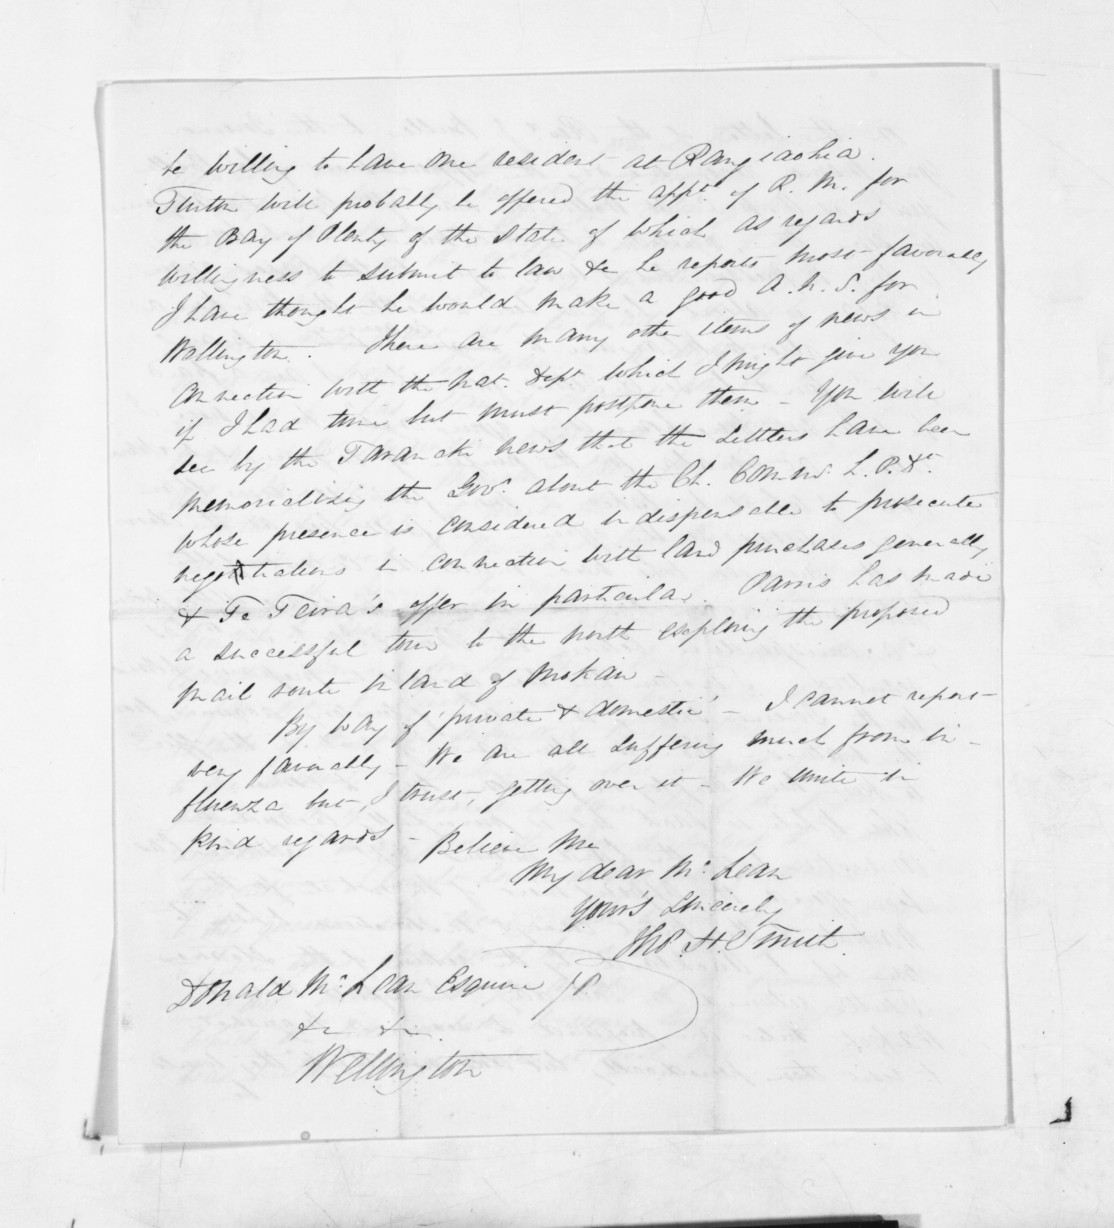 be willing to have one resident at Rangiaohia.
Turton will probably be offered the appt. of R. M. for
the Bay of Plenty of the state of which as regards
willingness to submit to law &c he reports most favorably
I have thought he would make a good A. N. S. for
Wellington. There are many other items of news in
connection with the Nat. Dept. which I might give you
if I had time but must postpone them – You will
see by the Taranaki news that the Settlers have been
memorializing the Govr. about the Ch. Commr. L. P. Dt.
whose presence is considered indispensable to prosecute
negotiations in connection with land purchases generally
& Te Teira's offer in particular. Parris has made
a successful tour to the north exploring the proposed
mail route inland of Mokau –
By way of 'private & domestic' – I cannot report
very favorably – We are all suffering much from in-
fluenza but, I trust, getting over it – We unite in
kind regards – Believe me
My dear McLean
Yours Sincerely
Thos. H. Smith.
Donald McLean Esquire JP.
&c &c.
Wellington